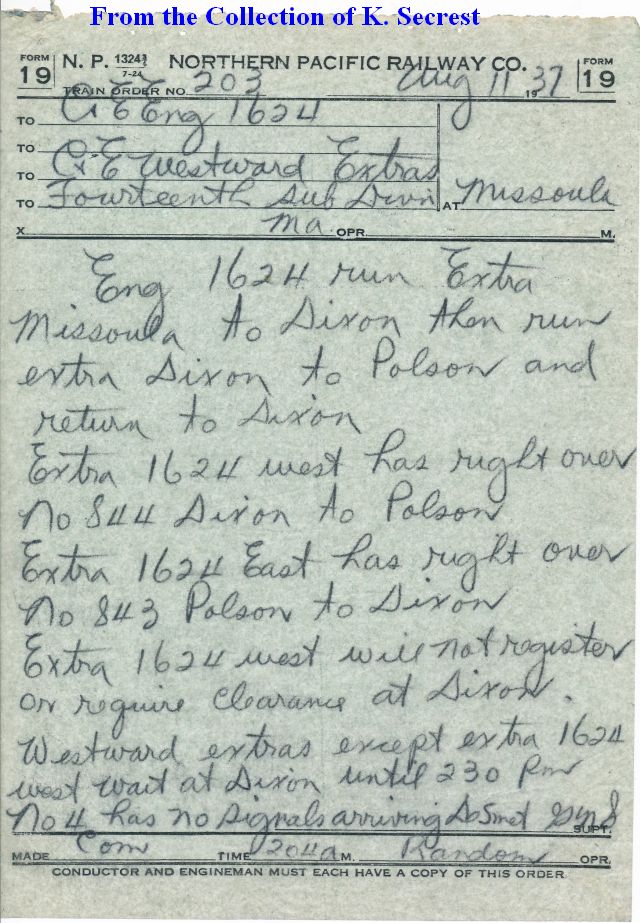 From the Collection of K. Secrest
FORM 19 N. P. 1324¾ 7-24 NORTHERN PACIFIC RAILWAY CO. FORM 19
TRAIN ORDER NO. 203 Aug 11 1937
TO C & E Eng 1624
TO
TO C & E Westward Extras
TO Fourteenth Sub Divn AT Missoula
X Ma OPR. M.
Eng 1624 run Extra
Missoula to Dixon then run
extra Dixon to Polson and
return to Dixon
Extra 1624 west has right over
No 844 Dixon to Polson
Extra 1624 East has right over
No 843 Polson to Dixon
Extra 1624 west will not register
or require clearance at Dixon.
Westward extras except extra 1624
west wait at Dixon until 230 Pm
No 4 has no signals arriving DeSmet SUPT.
MADE Com TIME 204a M. Random OPR.
CONDUCTOR AND ENGINEMAN MUST EACH HAVE A COPY OF THIS ORDER